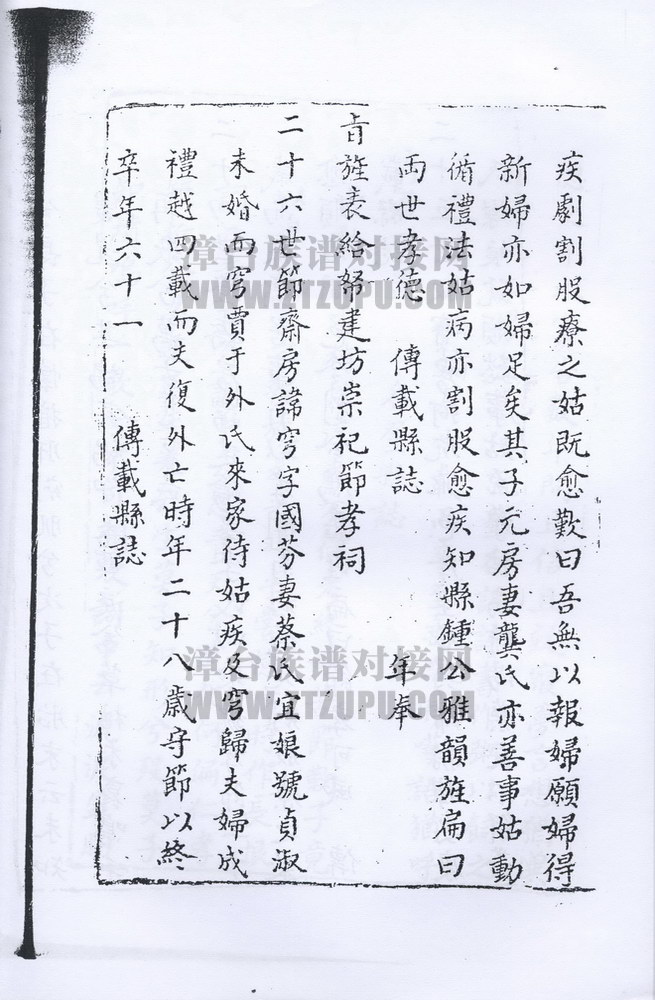 疾劇割股療之姑既愈歎曰吾無以報婦願婦得
新婦亦如婦足矣其子元房妻龔氏亦善事姑動
循禮法姑病亦割股愈疾知縣鍾公雅韻旌扁曰
兩世孝德 傳載縣誌 年奉
旨旌表給帑建坊崇祀節孝祠
二十六世節齋房諱穹字國芬妻蔡氏宜娘號貞淑
未婚而穹賈于外氏來家侍姑疾及穹歸夫婦成
禮越四載而夫復外亡時年二十八歲守節以終
卒年六十一 傳載縣誌
漳台族谱对接网
WWW.ZTZUPU.COM
漳台族谱对接网
WWW.ZTZUPU.COM